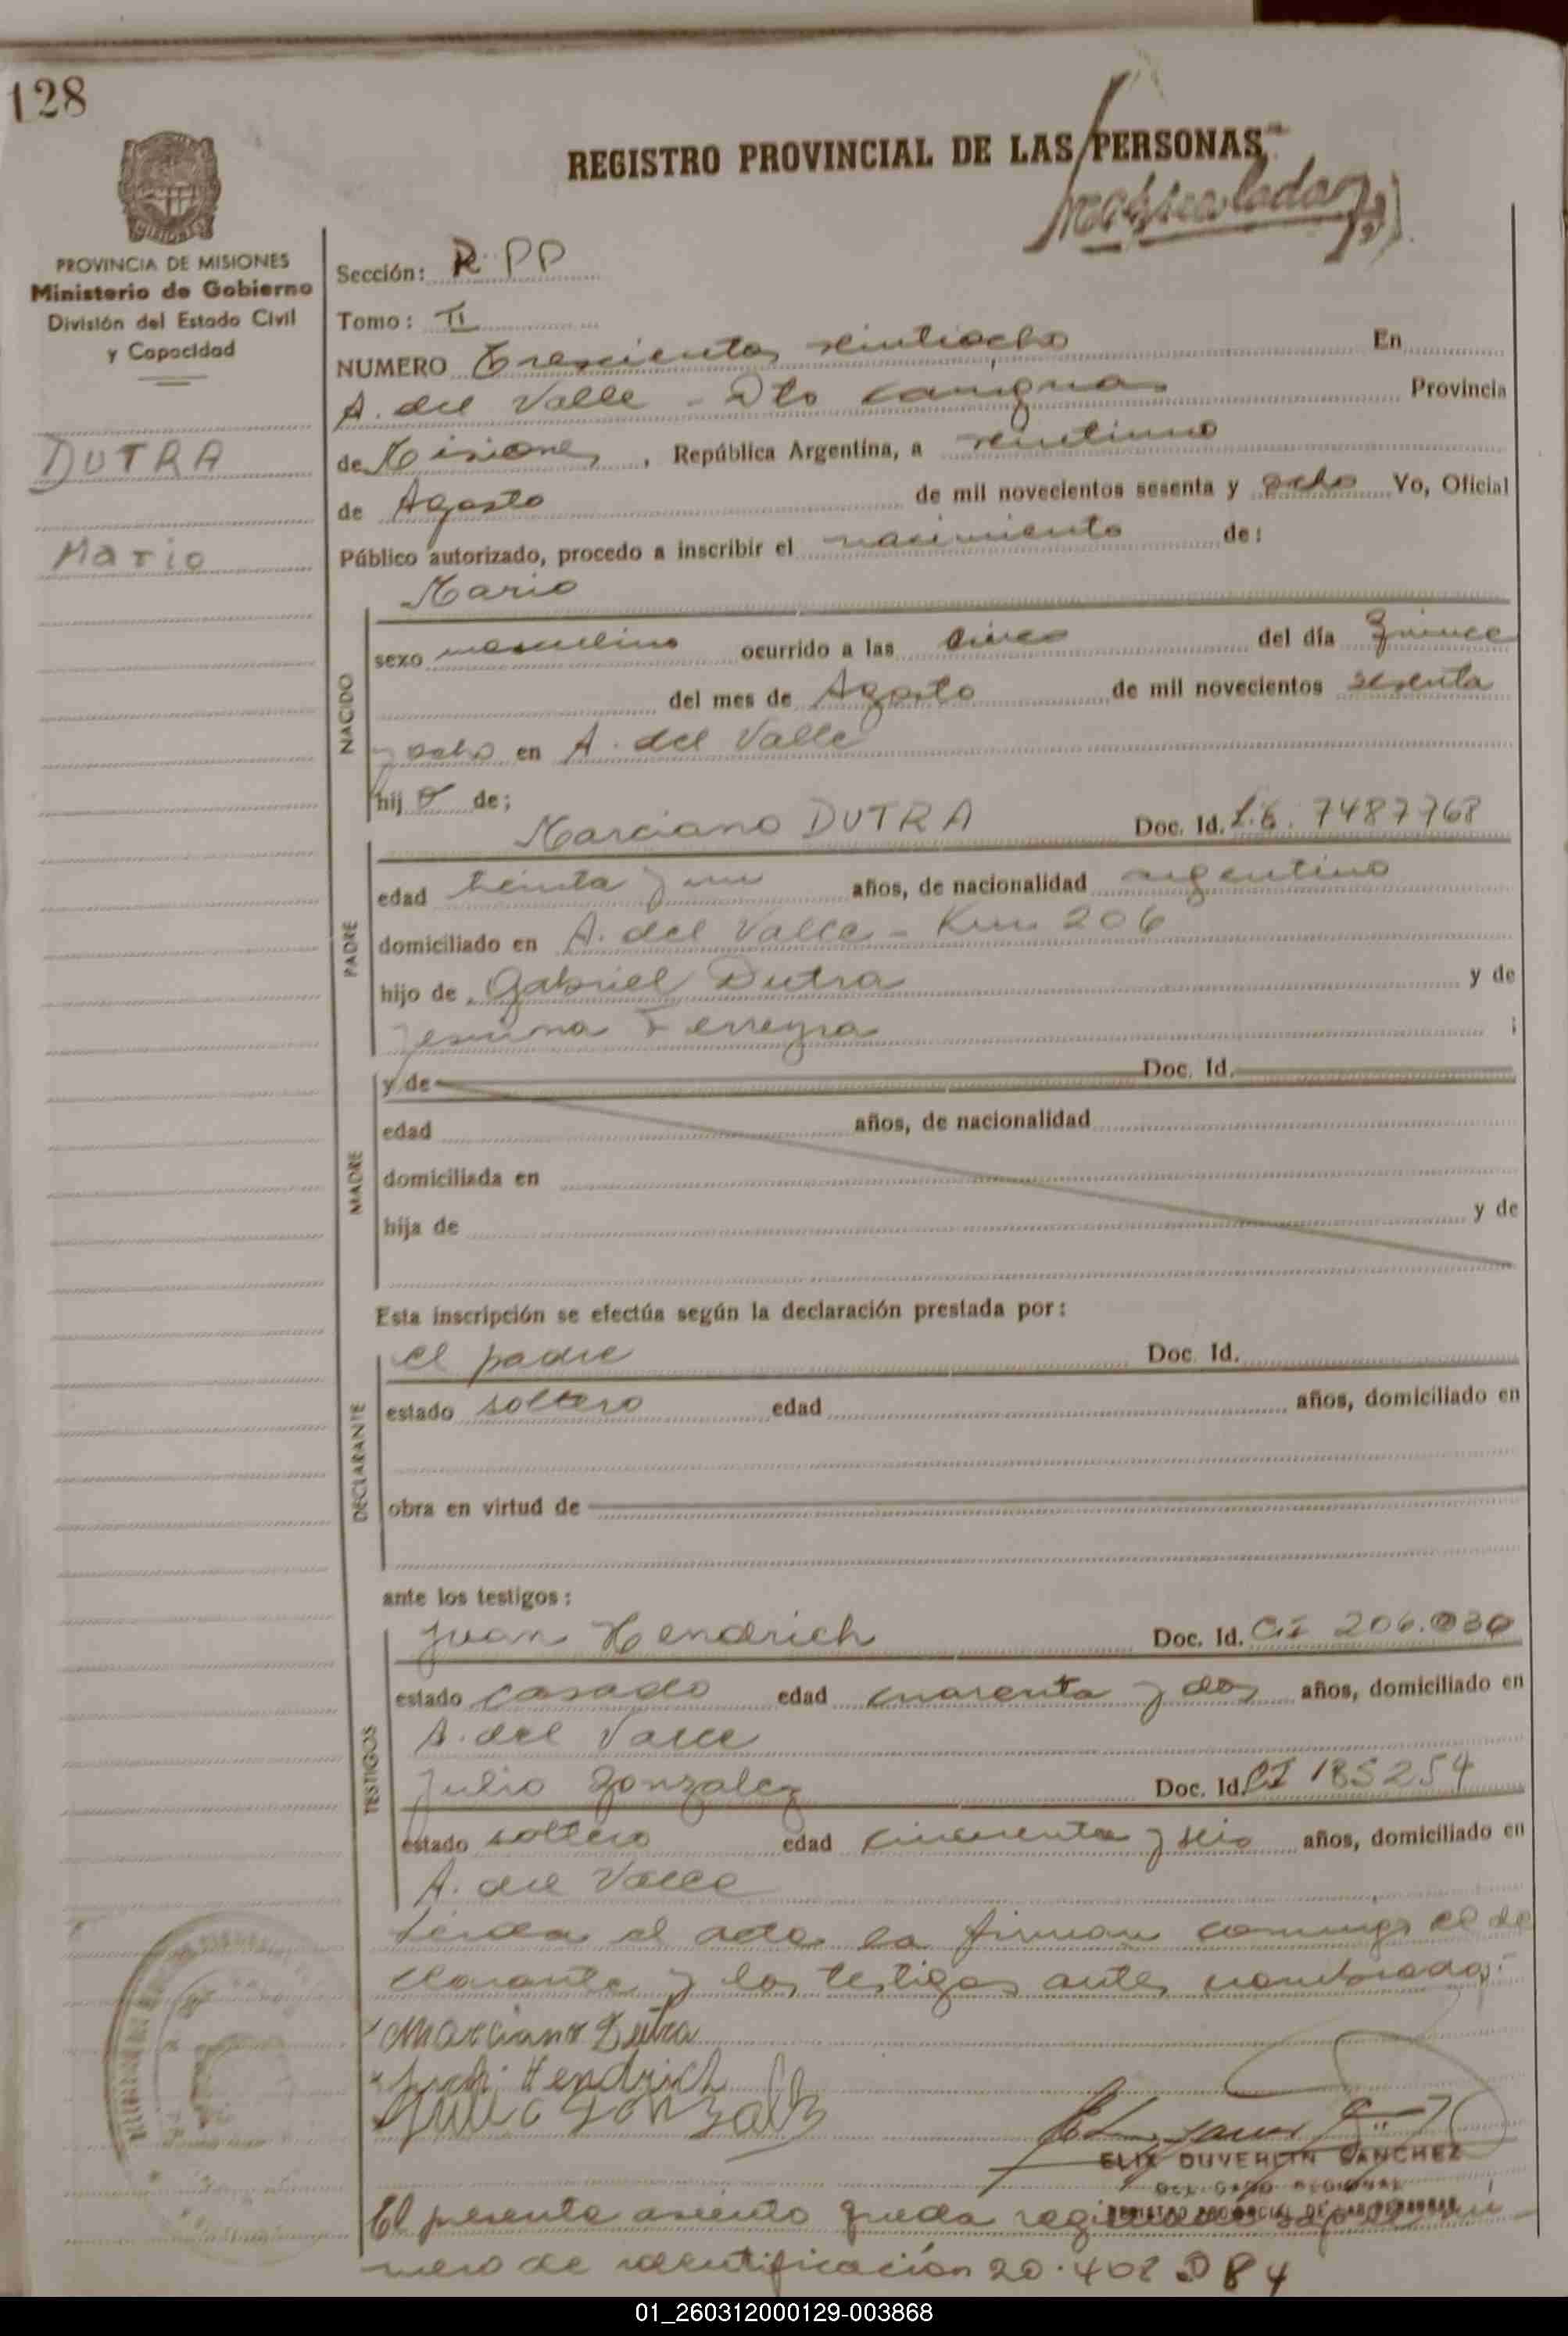 128
REGISTRO PROVINCIAL DE LAS PERSONAS
PROVINCIA DE MISIONES
Ministerio de Gobierno
División del Estado Civil
y Capacidad
DUTRA
Mario
Sección: R. PP
Tomo: II
NUMERO Trescientos veintiocho En
A. del Valle - Dto Cainguas Provincia
de Misiones, República Argentina, a veintiuno
de Agosto de mil novecientos sesenta y ocho Yo, Oficial
Público autorizado, procedo a inscribir el nacimiento de:
Mario
NACIDO
sexo masculino ocurrido a las cinco del día quince
del mes de Agosto de mil novecientos sesenta
y ocho en A. del Valle
hij o de;
Marciano DUTRA Doc. Id. L.E. 7487768
PADRE
edad treinta y un años, de nacionalidad argentino
domiciliado en A. del Valle - Km 206
hijo de Gabriel Dutra y de
Ferreyra ;
MADRE
y de Doc. Id.
edad años, de nacionalidad
domiciliada en
hija de y de
Esta inscripción se efectúa según la declaración prestada por:
DECLARANTE
el padre Doc. Id.
estado soltero edad años, domiciliado en
obra en virtud de
ante los testigos:
TESTIGOS
Juan Hendrich Doc. Id. CI 206.030
estado casado edad cuarenta y dos años, domiciliado en
A. del Valle
Julio Gonzalez Doc. Id. CI 185254
estado soltero edad cincuenta y seis años, domiciliado en
A. del Valle
Leida el acta la firman conmigo el de
clarante y los testigos antes nombrados:
Marciano Dutra
Hendrich
Julio Gonzalez
ELIX DUVERLIN SANCHEZ
DELEGADO REGIONAL
REGISTRO PROVINCIAL DE LAS PERSONAS
El presente asiento queda
mero de identificación 20.402 084
01_260312000129-003868